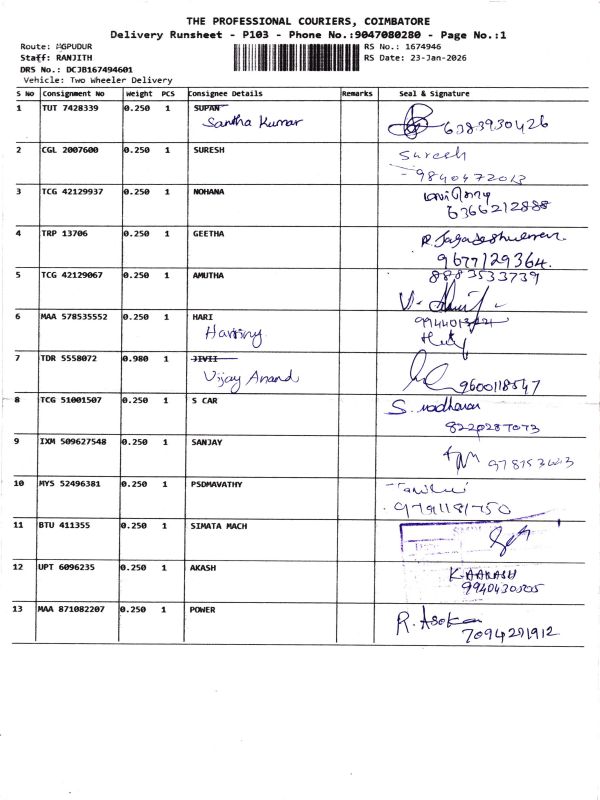 THE PROFESSIONAL COURIERS, COIMBATORE
Delivery Runsheet - P103 - Phone No.:9047080280 - Page No.:1
Route: MGPUDUR RS No.: 1674946
Staff: RANJITH RS Date: 23-Jan-2026
DRS No.: DCJB167494601
Vehicle: Two Wheeler Delivery
S No Consignment No Weight PCS Consignee Details Remarks Seal & Signature
1 TUT 7428339 0.250 1 SUPAN
Santha Kumar 6383930426
2 CGL 2007600 0.250 1 SURESH Suresh
9840472013
3 TCG 42129937 0.250 1 MOHANA
6366212888
4 TRP 13706 0.250 1 GEETHA R. Jagadeshwaran
9677129364.
5 TCG 42129067 0.250 1 AMUTHA 8883533739
6 MAA 578535552 0.250 1 HARI
Harriny
7 TDR 5558072 0.980 1 JIVII
Vijay Anand 9600118547
8 TCG 51001507 0.250 1 S CAR S.
8220287073
9 IXM 509627548 0.250 1 SANJAY
10 MYS 52496381 0.250 1 PSDMAVATHY
9791181750
11 BTU 411355 0.250 1 SIMATA MACH
12 UPT 6096235 0.250 1 AKASH K. AAKASH
9940430505
13 MAA 871082207 0.250 1 POWER R. Asokan
7094291912